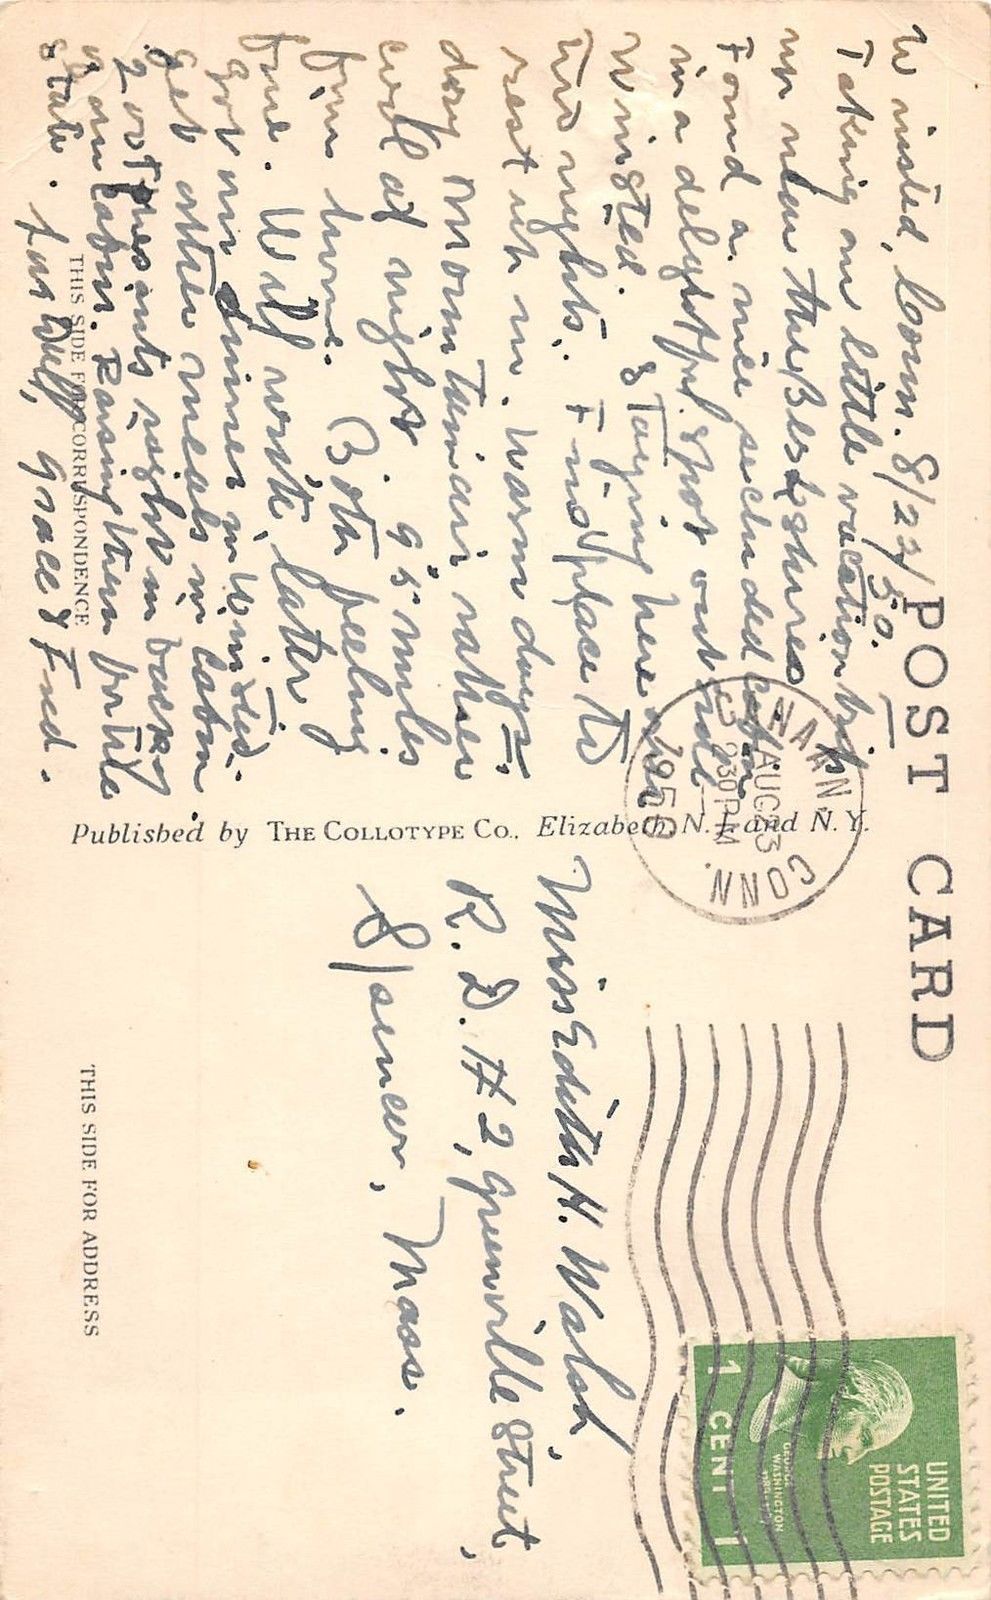 POST CARD
Winsted, Conn. 8/22/50.
Taking our little vacation trip
up near the Berkshires
Found a nice secluded cabin
in a delightful spot outside
Winsted. Staying here
two nights. Find place to
rest up in. Warm days,
day Mountain air rather
cool at night. 95 miles
from home. Both feeling
fine. Will write later
Got our dinner in Winsted.
get other meals in cabin.
2 pheasants right in back
our cabin. Raising them for the
state. Grace & Fred.
THIS SIDE FOR CORRESPONDENCE
Published by THE COLLOTYPE CO., Elizabeth, N. J. and N. Y.
CANAAN, CONN.
AUG 23
2 30 PM
1950
UNITED
STATES
POSTAGE
GEORGE
WASHINGTON
1 CENT 1
Miss Edith H. Walsh,
R. D. # 2, Greenville Street,
Spencer, Mass.
THIS SIDE FOR ADDRESS